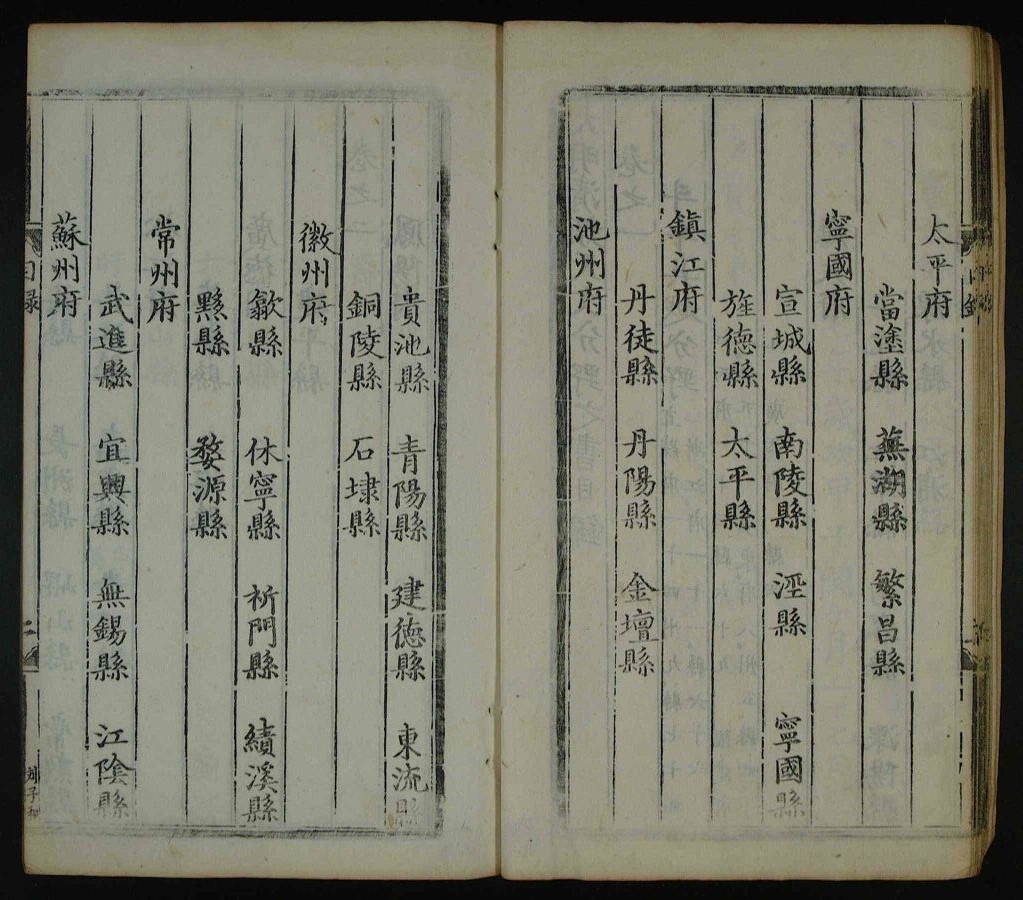 太平府
當塗縣 蕪湖縣 繁昌縣
寧國府
宣城縣 南陵縣 涇縣 寧國縣
旌德縣 太平縣
鎮江府
丹徒縣 丹陽縣 金壇縣
池州府
貴池縣 青陽縣 建德縣 東流縣
銅陵縣 石埭縣
徽州府
歙縣 休寧縣 祈門縣 績溪縣
黟縣 婺源縣
常州府
武進縣 宜興縣 無錫縣 江陰縣
蘇州府
目錄
二